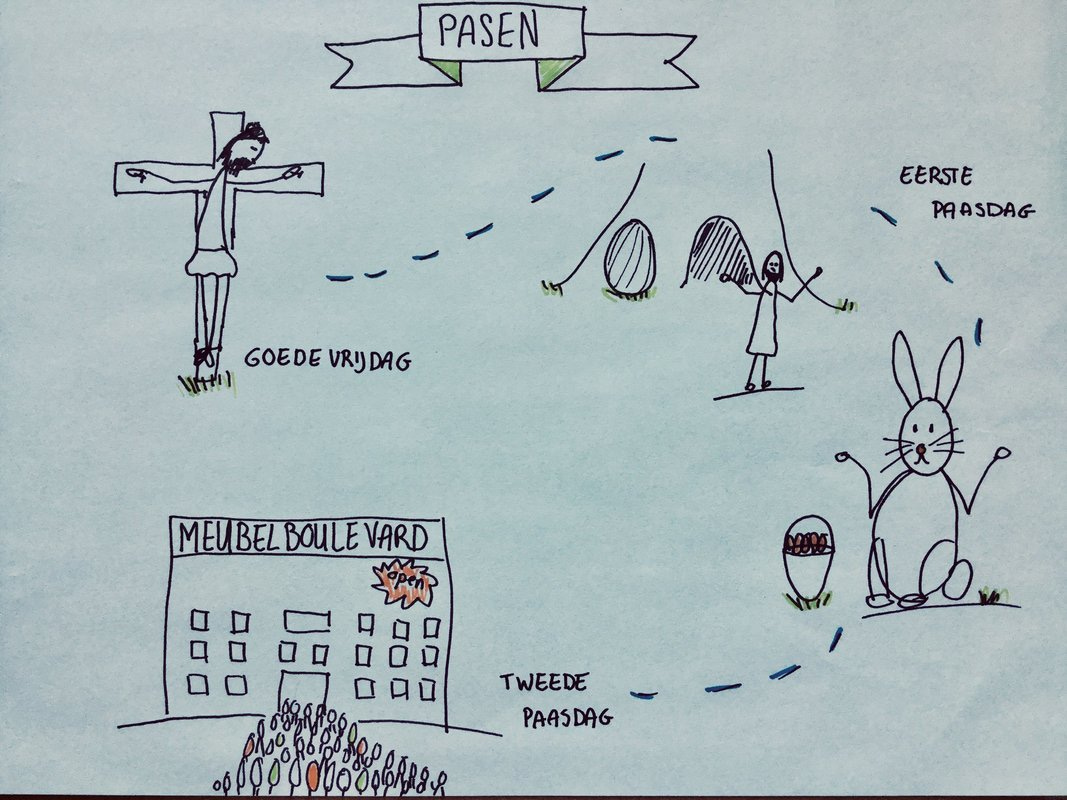 PASEN
GOEDE VRIJDAG
EERSTE
PAASDAG
MEUBELBOULEVARD
open
TWEEDE
PAASDAG